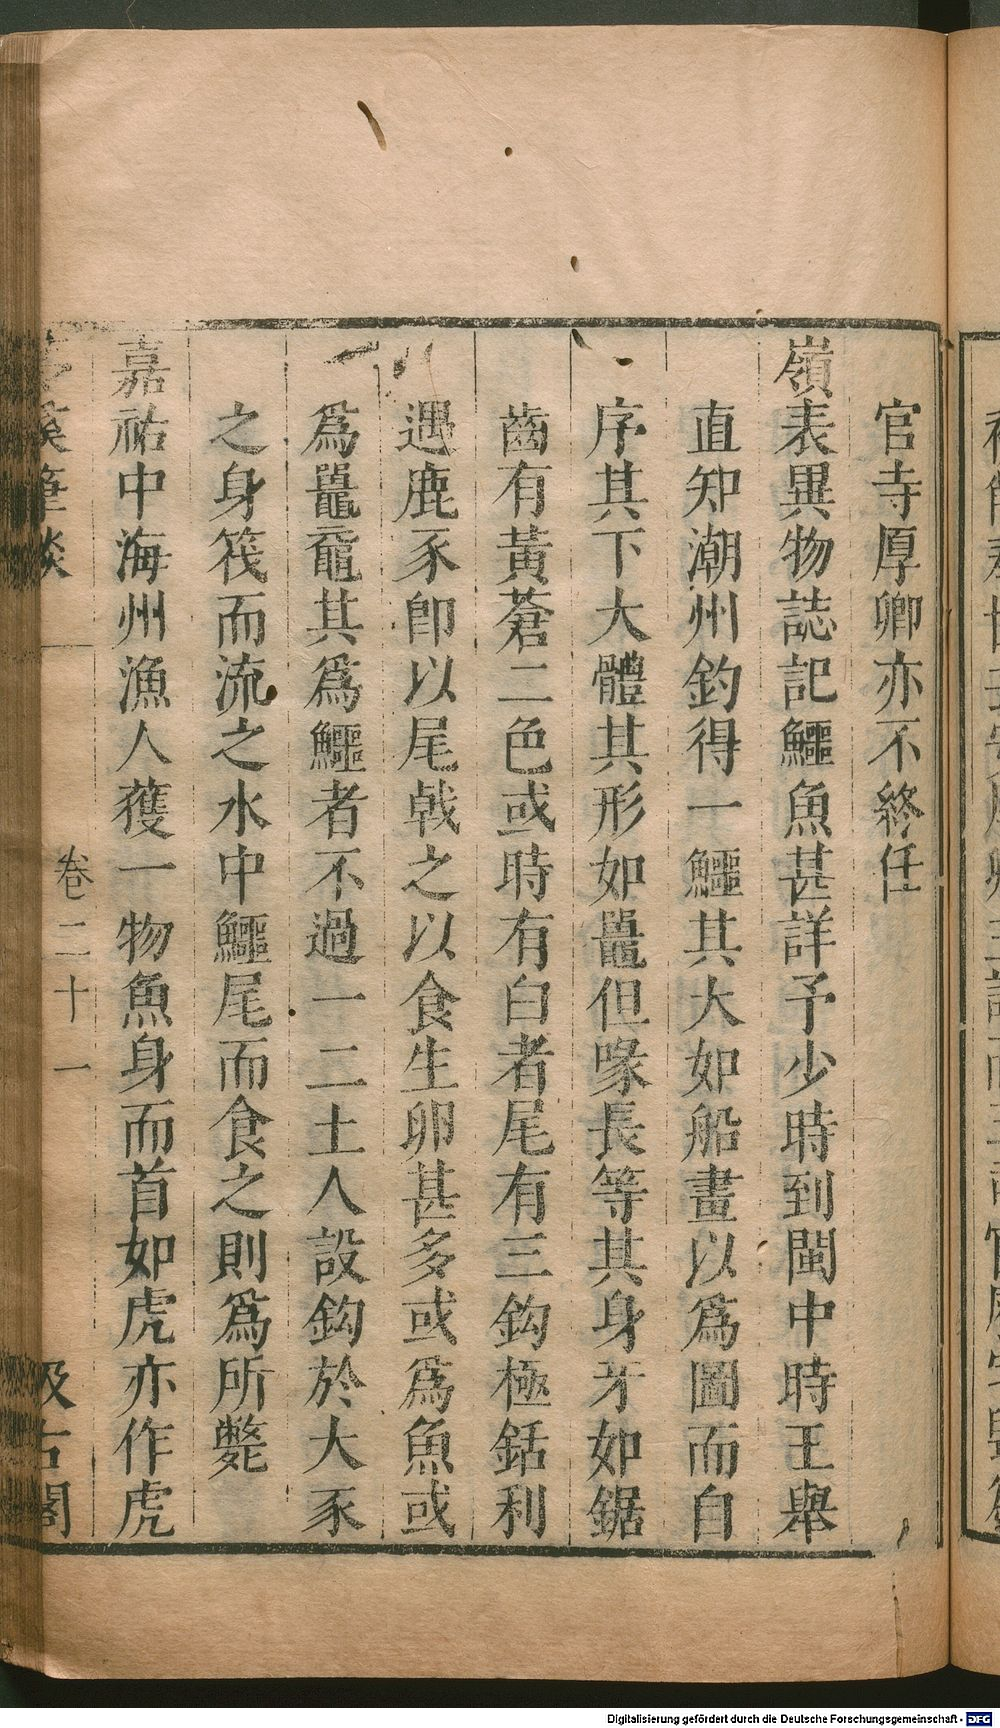 官寺厚卿亦不終任
嶺表異物誌記鱷魚甚詳予少時到閩中時王舉
直知潮州釣得一鱷其大如船畫以爲圖而自
序其下大體其形如鼉但喙長等其身牙如鋸
齒有黃蒼二色或時有白者尾有三鈎極銛利
遇鹿豕卽以尾戟之以食生卵甚多或爲魚或
爲鼉黿其爲鱷者不過一二土人設鈎於大豕
之身筏而流之水中鱷尾而食之則爲所斃
嘉祐中海州漁人獲一物魚身而首如虎亦作虎
溪筆談 卷二十一 汲古閣
Digitalisierung gefördert durch die Deutsche Forschungsgemeinschaft - DFG